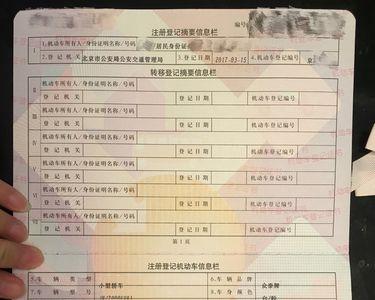 注册登记摘要信息栏
编号
I 1.机动车所有人/身份证明名称/号码 /居民身份证
2.登记机关 北京市公安局公安交通管理局 3.登记日期 2017-03-15 4.机动车登记编号 京
转移登记摘要信息栏
II 机动车所有人/身份证明名称/号码
登记机关 登记日期 机动车登记编号
III 机动车所有人/身份证明名称/号码
登记机关 登记日期 机动车登记编号
IV 机动车所有人/身份证明名称/号码
登记机关 登记日期 机动车登记编号
V 机动车所有人/身份证明名称/号码
登记机关 登记日期 机动车登记编号
VI 机动车所有人/身份证明名称/号码
登记机关 登记日期 机动车登记编号
VII 机动车所有人/身份证明名称/号码
登记机关 登记日期 机动车登记编号
第1页
注册登记机动车信息栏
5.车辆类型 小型轿车 6.车辆品牌 众泰牌
7.车辆型号 8.车身颜色